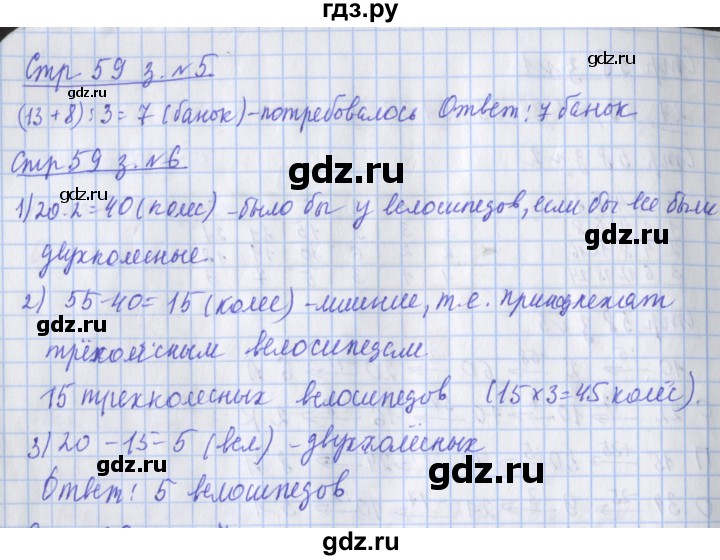 гдз.ру
Стр 59 з. №5.
gdz.ru
(13+8):3=7 (банок)-потребовалось Ответ: 7 банок
gdz.ru
Стр 59 з. №6
gdz.ru
1) 20·2=40 (колес) -было бы у велосипедов, если бы все были
gdz.ru
двухколесные.
2) 55-40=15 (колес) -лишние, т.е. принадлежат
gdz.ru
трёхколёсным велосипедам
gdz.ru
15 трехколесных велосипедов (15×3=45 колёс).
3) 20-15=5 (вел.) -двухколёсных
gdz.ru
Ответ: 5 велосипедов
gdz.ru
gdz.ru